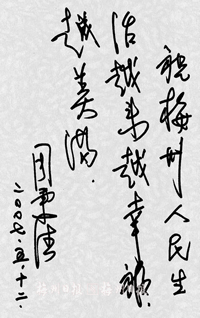 祝梅州人民生
活越来越幸福
越美满.
周
二〇〇七.五.十二.